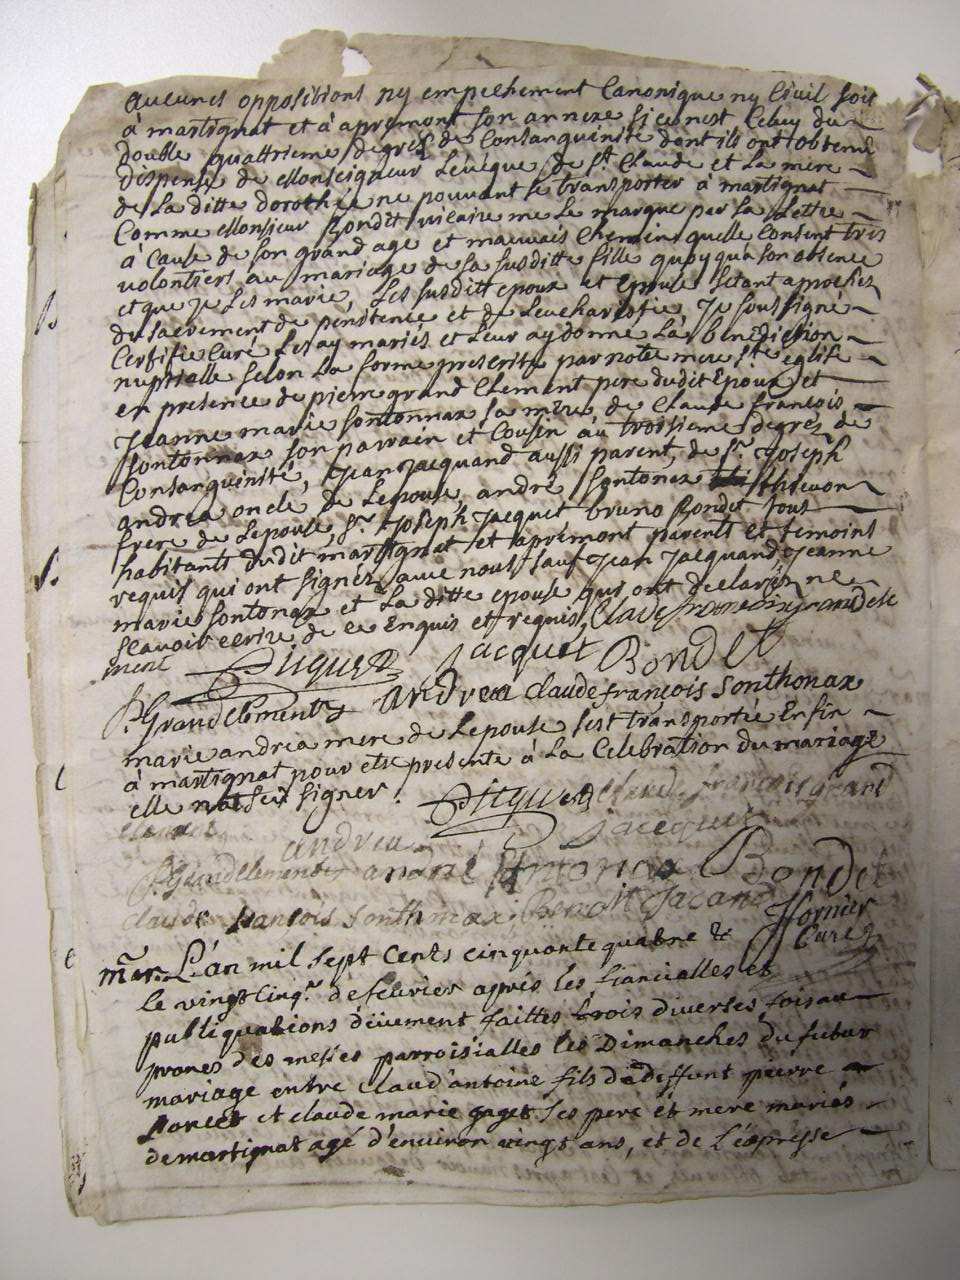 aucunes oppositions ny empechement Canonique ny Civil soit
à martignat et à apremont son annexe si ce nest Celuy du
double quattrieme degres de Consanquinité dont ils ont obtenu
dispense de Monseigneur Lévêque de St. Claude et La mere
de La ditte dorothée ne pouvant se transporter à martignat
Comme Monsieur Rondit vicaire me Le marque par sa Lettre
à Cause de son grand age et mauvais Chemin quelle Consent tres
volontiers au mariage de sa susditte fille quoyqua son absence
et que je Les marie, Les susditt epoux et Epouse setant approchez
du sacrement de pénitence et de Leucharistie, Je soussigné
Certifie Curé Les ay mariés et Leur ay donné La benediction
nuptialle selon La forme prescritte par notre mere ste eglise
en presence de pierre grand Clement pere dudit Epoux et
Jeanne marie sontonnax sa mere, de Claude francois
sontonnax son parrain et Cousin au troisieme degrez de
Consanquinité, Jean Jacquand aussi parent, de sr. Joseph
andrea oncle de Lepouse, andré sontonax thievon
frere de Lepouse, sr. Joseph Jacquet bruno Rondet tous
habitants dudit martignat et apremont parents et temoins
requis qui ont signéz avec nous sauf Jean Jacquand Jeanne
marie sontonax et La ditte epouse qui ont declaréz ne
scavoir ecrire de ce Enquis et requis, Claude francoin grandcle
ment Jacquet Bondet
P. Grandclement andrea claude françois Sonthonax
marie andréa mere de Lepouse s'est transportée Enfin
à martignat pour etre presente à La Celebration du mariage
elle na scu signer. claude françois grand
clement andrea Jacquet
P Grandclement andré sontonax Bondet
claude francois Sonthonax Benoit Jacand fornier
Curé
mar. L'an mil sept cents cinquante quatre &
le vingt cinq.e de fevrier apris les fiancialles et
publiquations düement faittes trois diverses fois au
prones des messes parroisialles les Dimanches du futur
mariage entre claud'antoine fils de deffunt pierre
poncet et claude marie gaget ses peré et mere mariés
de martignat agé d'environ vingt ans, et de L'expresse